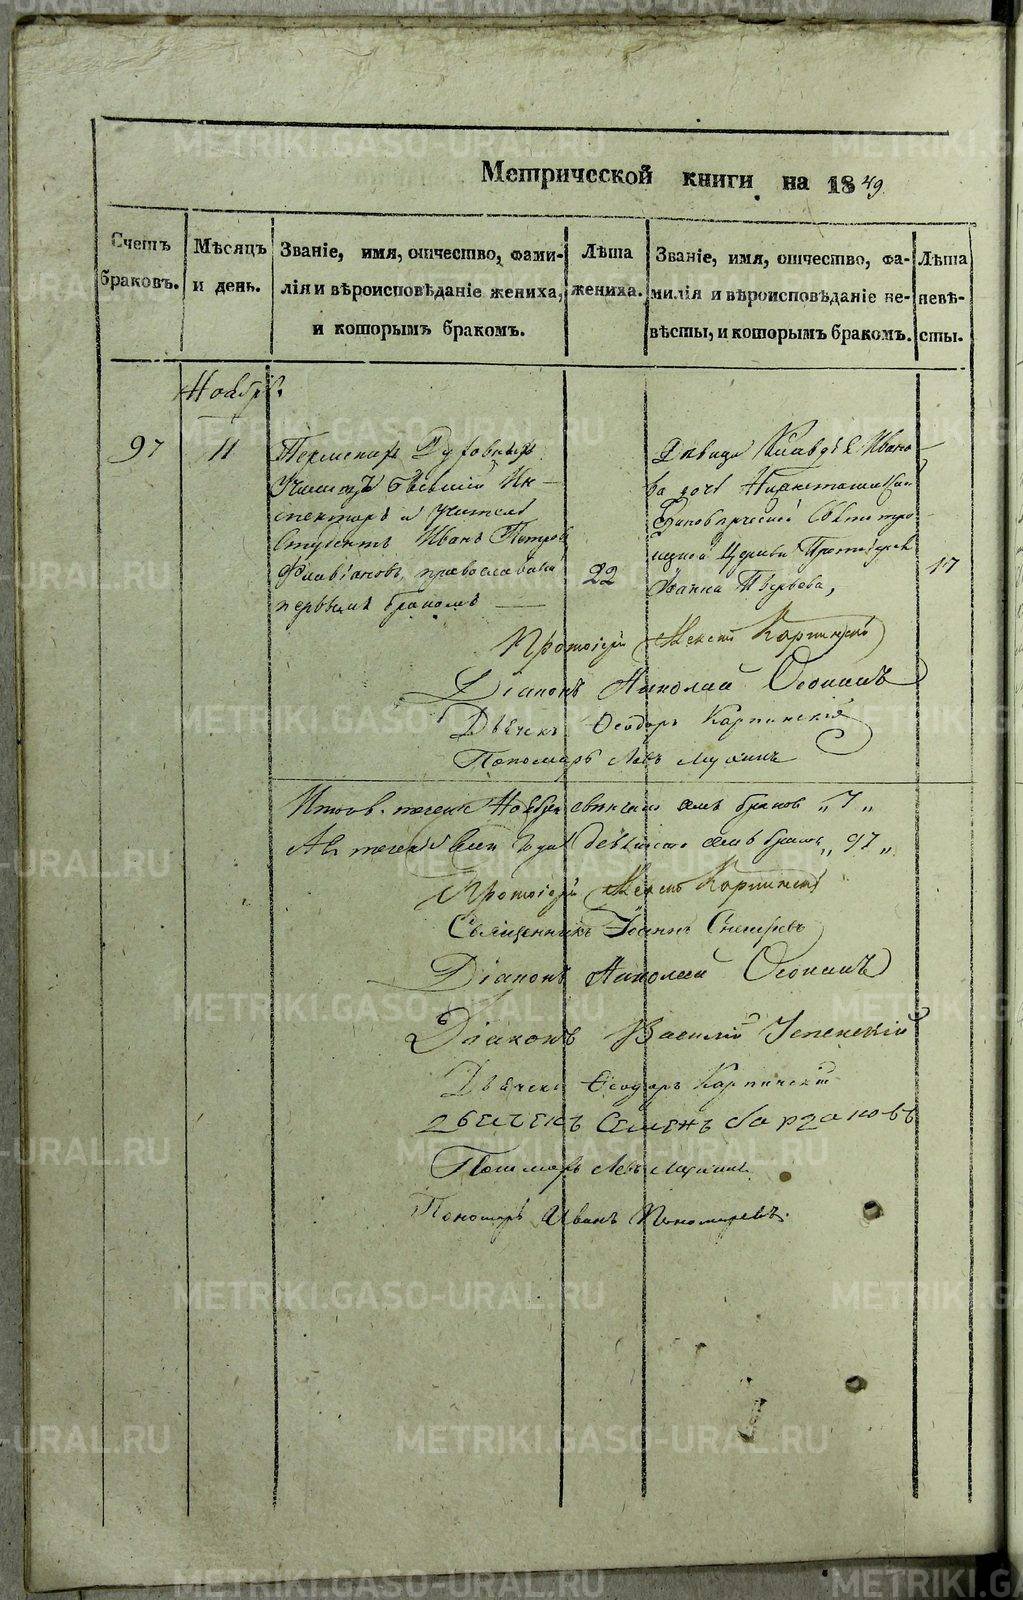 Метрической книги на 1849
Счетъ браковъ.
Мѣсяцъ и день.
Званіе, имя, отчество, фами-
лія и вѣроисповѣданіе жениха,
и которымъ бракомъ.
Лѣта
жениха.
Званіе, имя, отчество, фа-
милія и вѣроисповѣданіе не-
вѣсты, и которымъ бракомъ.
Лѣта
невѣ-
сты.
Ноябрь
97
11
Пермскихъ Духовныхъ
Училищъ бывшій Ин-
спекторъ и учитель
Студентъ Иванъ Петровъ
Флавіановъ, православнаго
первымъ бракомъ
22
Дѣвица Клавдія Ивано-
ва дочь Нижнетагильской
Единовѣрческой Святотро-
ицкой Церкви Протоіерея
Іоанна Пырьева,
17
Протоіерей Карпинскій
Діаконъ Николай Осокинъ
Дьячекъ Ѳеодоръ Карпинскій
Пономарь Левъ Мухинъ
Итого въ Ноябрѣ семь браковъ „7„
А въ теченіе всего Года девяносто семь браковъ „97„
Протоіерей Карпинскій
Священникъ Іоаннъ
Діаконъ Николай Осокинъ
Діаконъ Василій Успенскій
Дьячекъ Ѳеодоръ Карпинскій
Семенъ
Пономарь Левъ Мухинъ
Пономарь Иванъ Пономаревъ.
METRIKI.GASO-URAL.RU